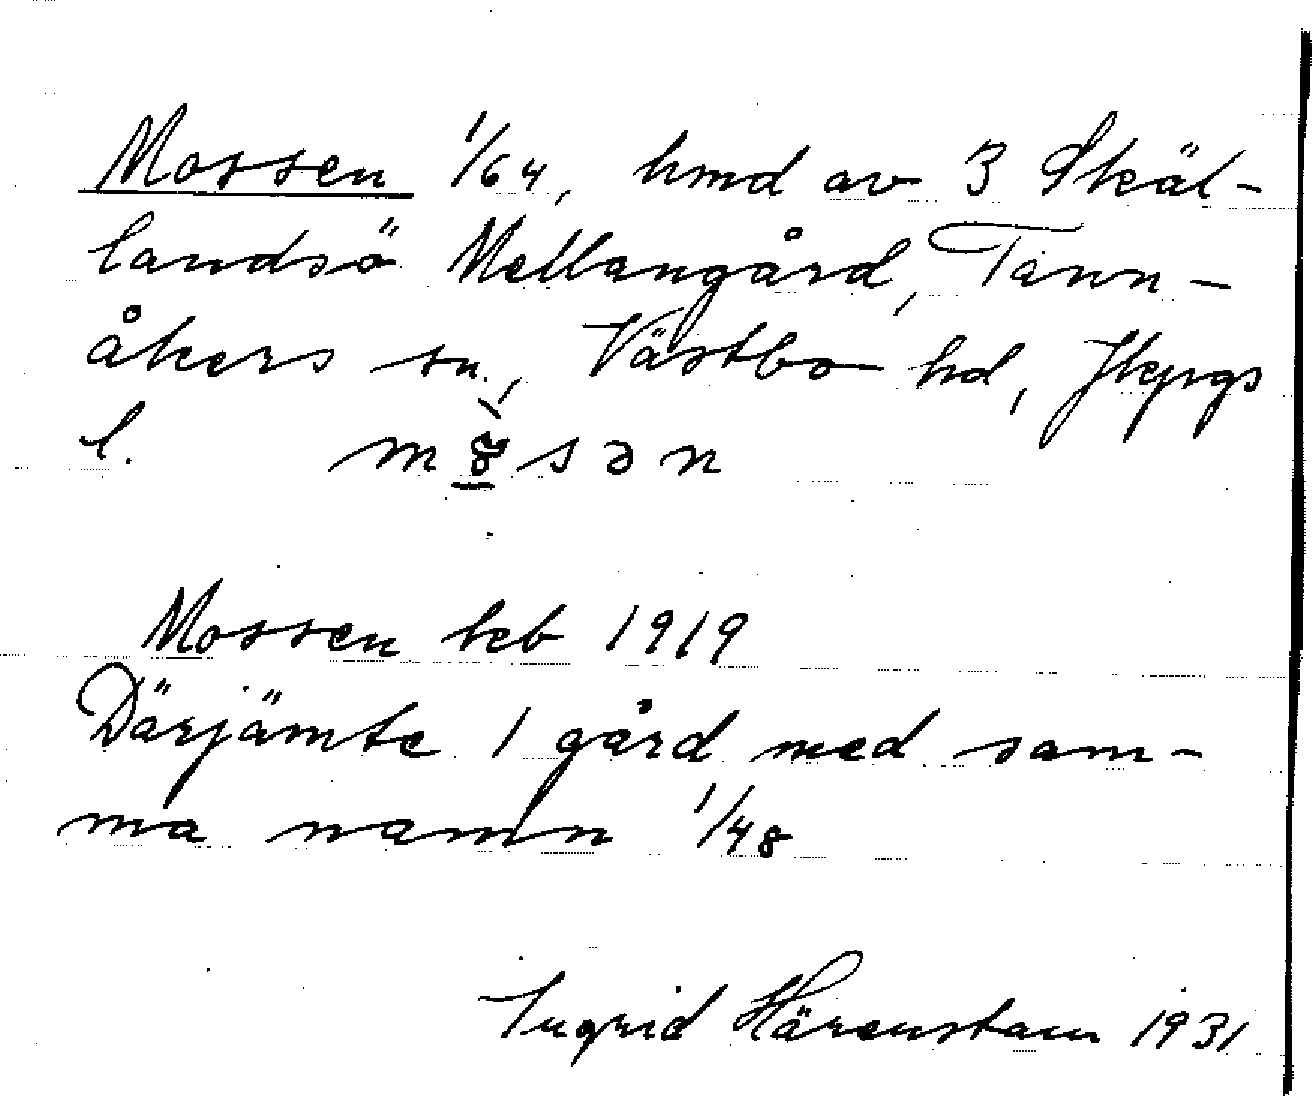 Mossen 1/64, hmd av 3 Skäl-
landsö Mellangård, Tann-
åkers sn., Västbo hd, Jkpgs
l.
Mossen beb 1919
Därjämte 1 gård med sam-
ma namn 1/48
Ingrid Härenstam 1931